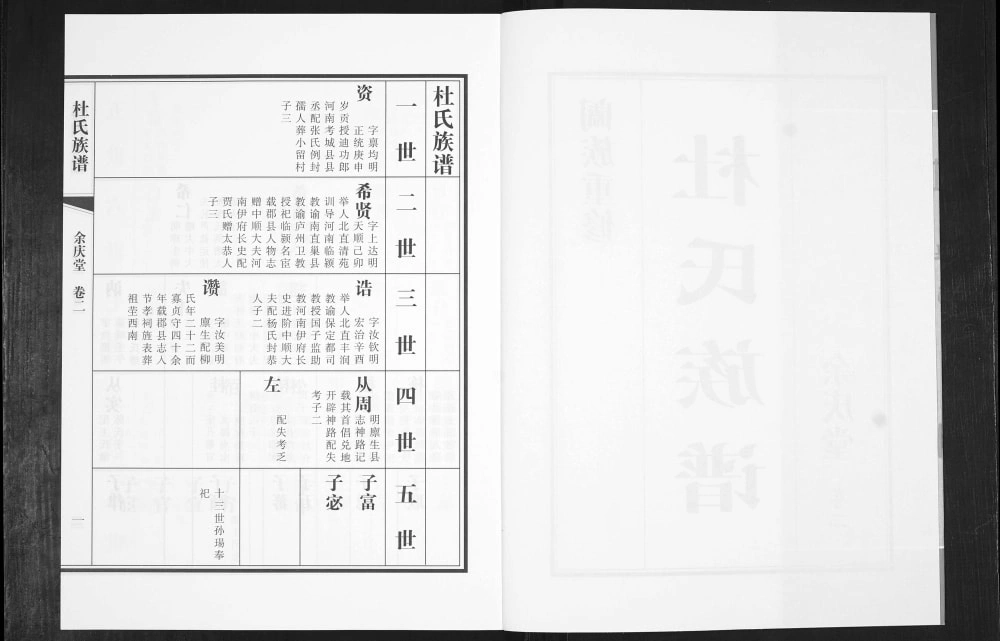 杜氏族谱
一世
资
字禀均明
正统庚申
岁贡授迪功郎
河南考城县县
丞配张氏例封
孺人葬小留村
子三
二世
希贤
字上达明
天顺己卯
举人北直清苑
训导河南临颍
教谕南直巢县
教谕庐州卫教
授祀临颍名宦
载郡县人物志
赠中顺大夫河
南伊府长史配
贾氏赠太恭人
子三
三世
诰
字汝钦明
宏治辛酉
举人北直丰润
教谕保定都司
教授国子监助
教河南伊府长
史进阶中顺大
夫配杨氏封恭
人子二
讚
字汝美明
廪生配柳
氏年二十二而
寡贞守四十余
年载郡县志人
节孝祠旌表葬
祖茔西南
四世
从周
明廪生县
志神路记
载其首倡兑地
开辟神路配失
考子二
左
配失考乏
五世
子富
子宓
十三世孙瑒奉
祀
杜氏族谱
余庆堂 卷二
一